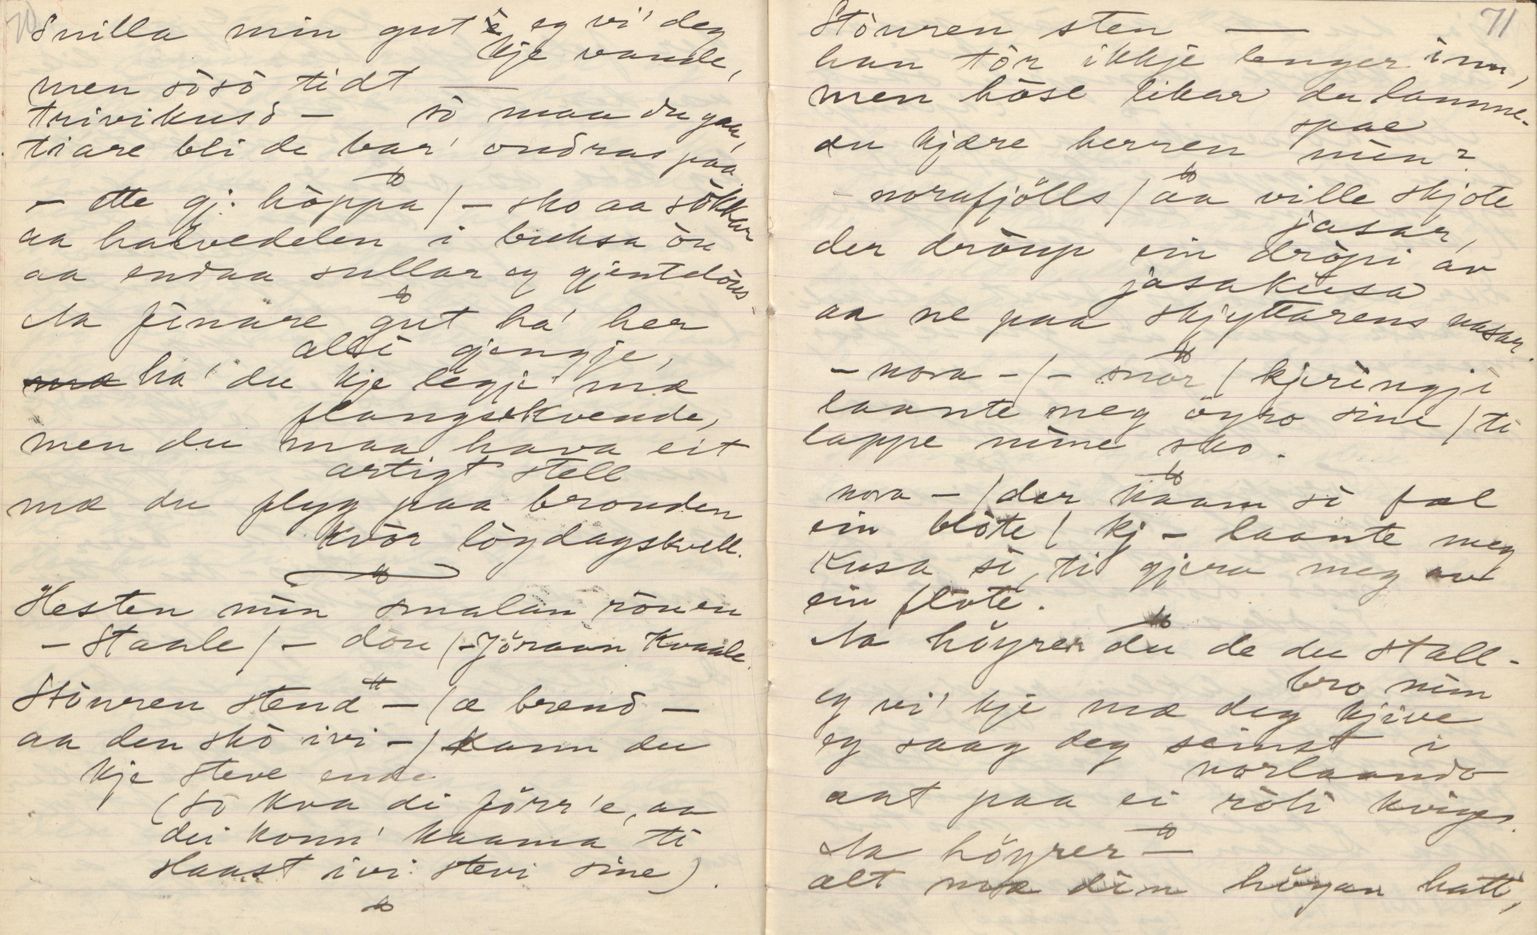 70
Snilla min gut è eg vi' deg
kje vande,
men sòsò tidt —
trivikusò — sò maa du gaa,
tiare bli de bar' ondras paa.
– ette gj. hòppa / – sko aa sòkkar
aa halvedelen i buksa òu
aa endaa sullar eg gjentelòus
Aa finare gut ha' her
alli gjengje,
ha' du kje legji mæ
flangsekvende,
men du maa hava eit
artigt stell
mæ du flyg paa bronden
kvòr löydagskvell.
Hesten min smalan ròuen
– Staale / – dòu / – Jöraan Kvaale.
Stòuren stend – / æ brend –
aa den skò ivi – / kann du
kje steve ende
(sò kva di förr'e, aa
dei konn' kaama ti
slaast ivi stevi sine).
71
Stòuren sten —
han tòr ikkje lenger inn,
men hòse likar du lamme-
spae
du kjære herren min?
– norafjölls / aa ville skjote
jasar,
der dròup ein dròpi av
jasakusa
aa ne paa skjyttarens nasar.
– nora – / – snör / kjeringji
laante meg òyro sine / ti
lappe mine sko.
nora – / der kaam si fæl
ein blòte / kj – laante meg
Kusa si, ti gjera meg av
ein flòte.
Aa höyrer du de du stall-
bro min
eg vi' kje mæ deg kjive
eg saag deg seinst i
norlaando
aat paa ei ròti kvige.
Aa höyrer –
alt mæ din högan hatt,